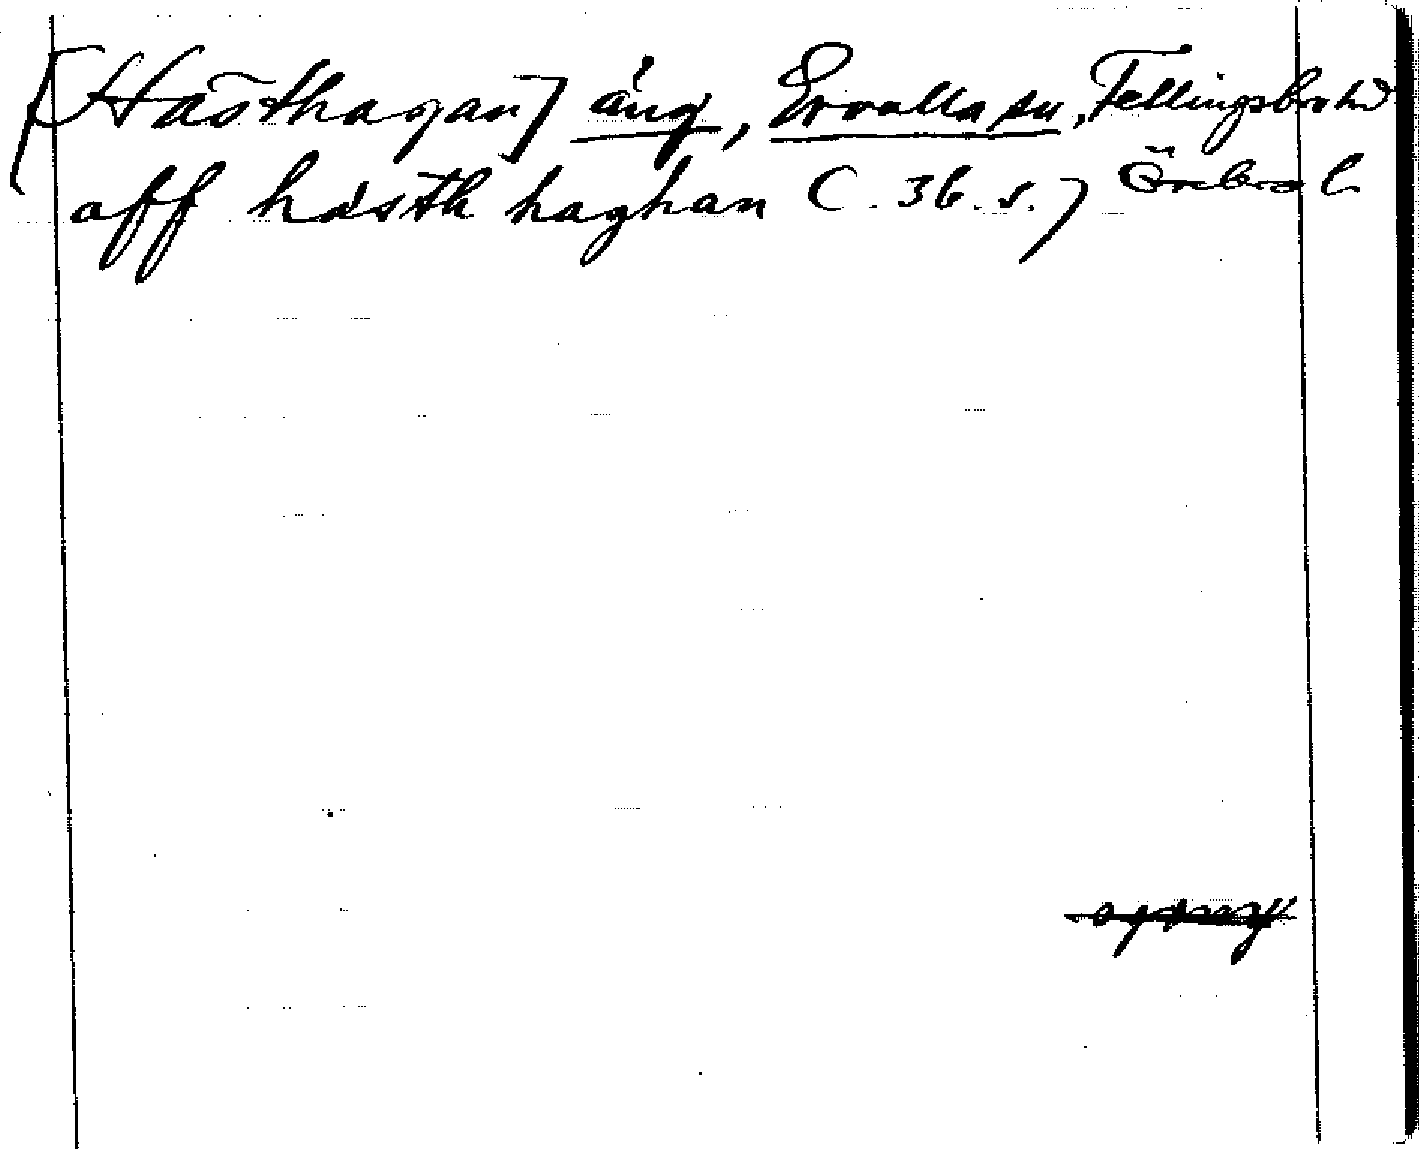 [Hästhagan] äng, Ervalla sn, Fellingsbro hd
aff hästh haghan (. 36. s.) Örebro l